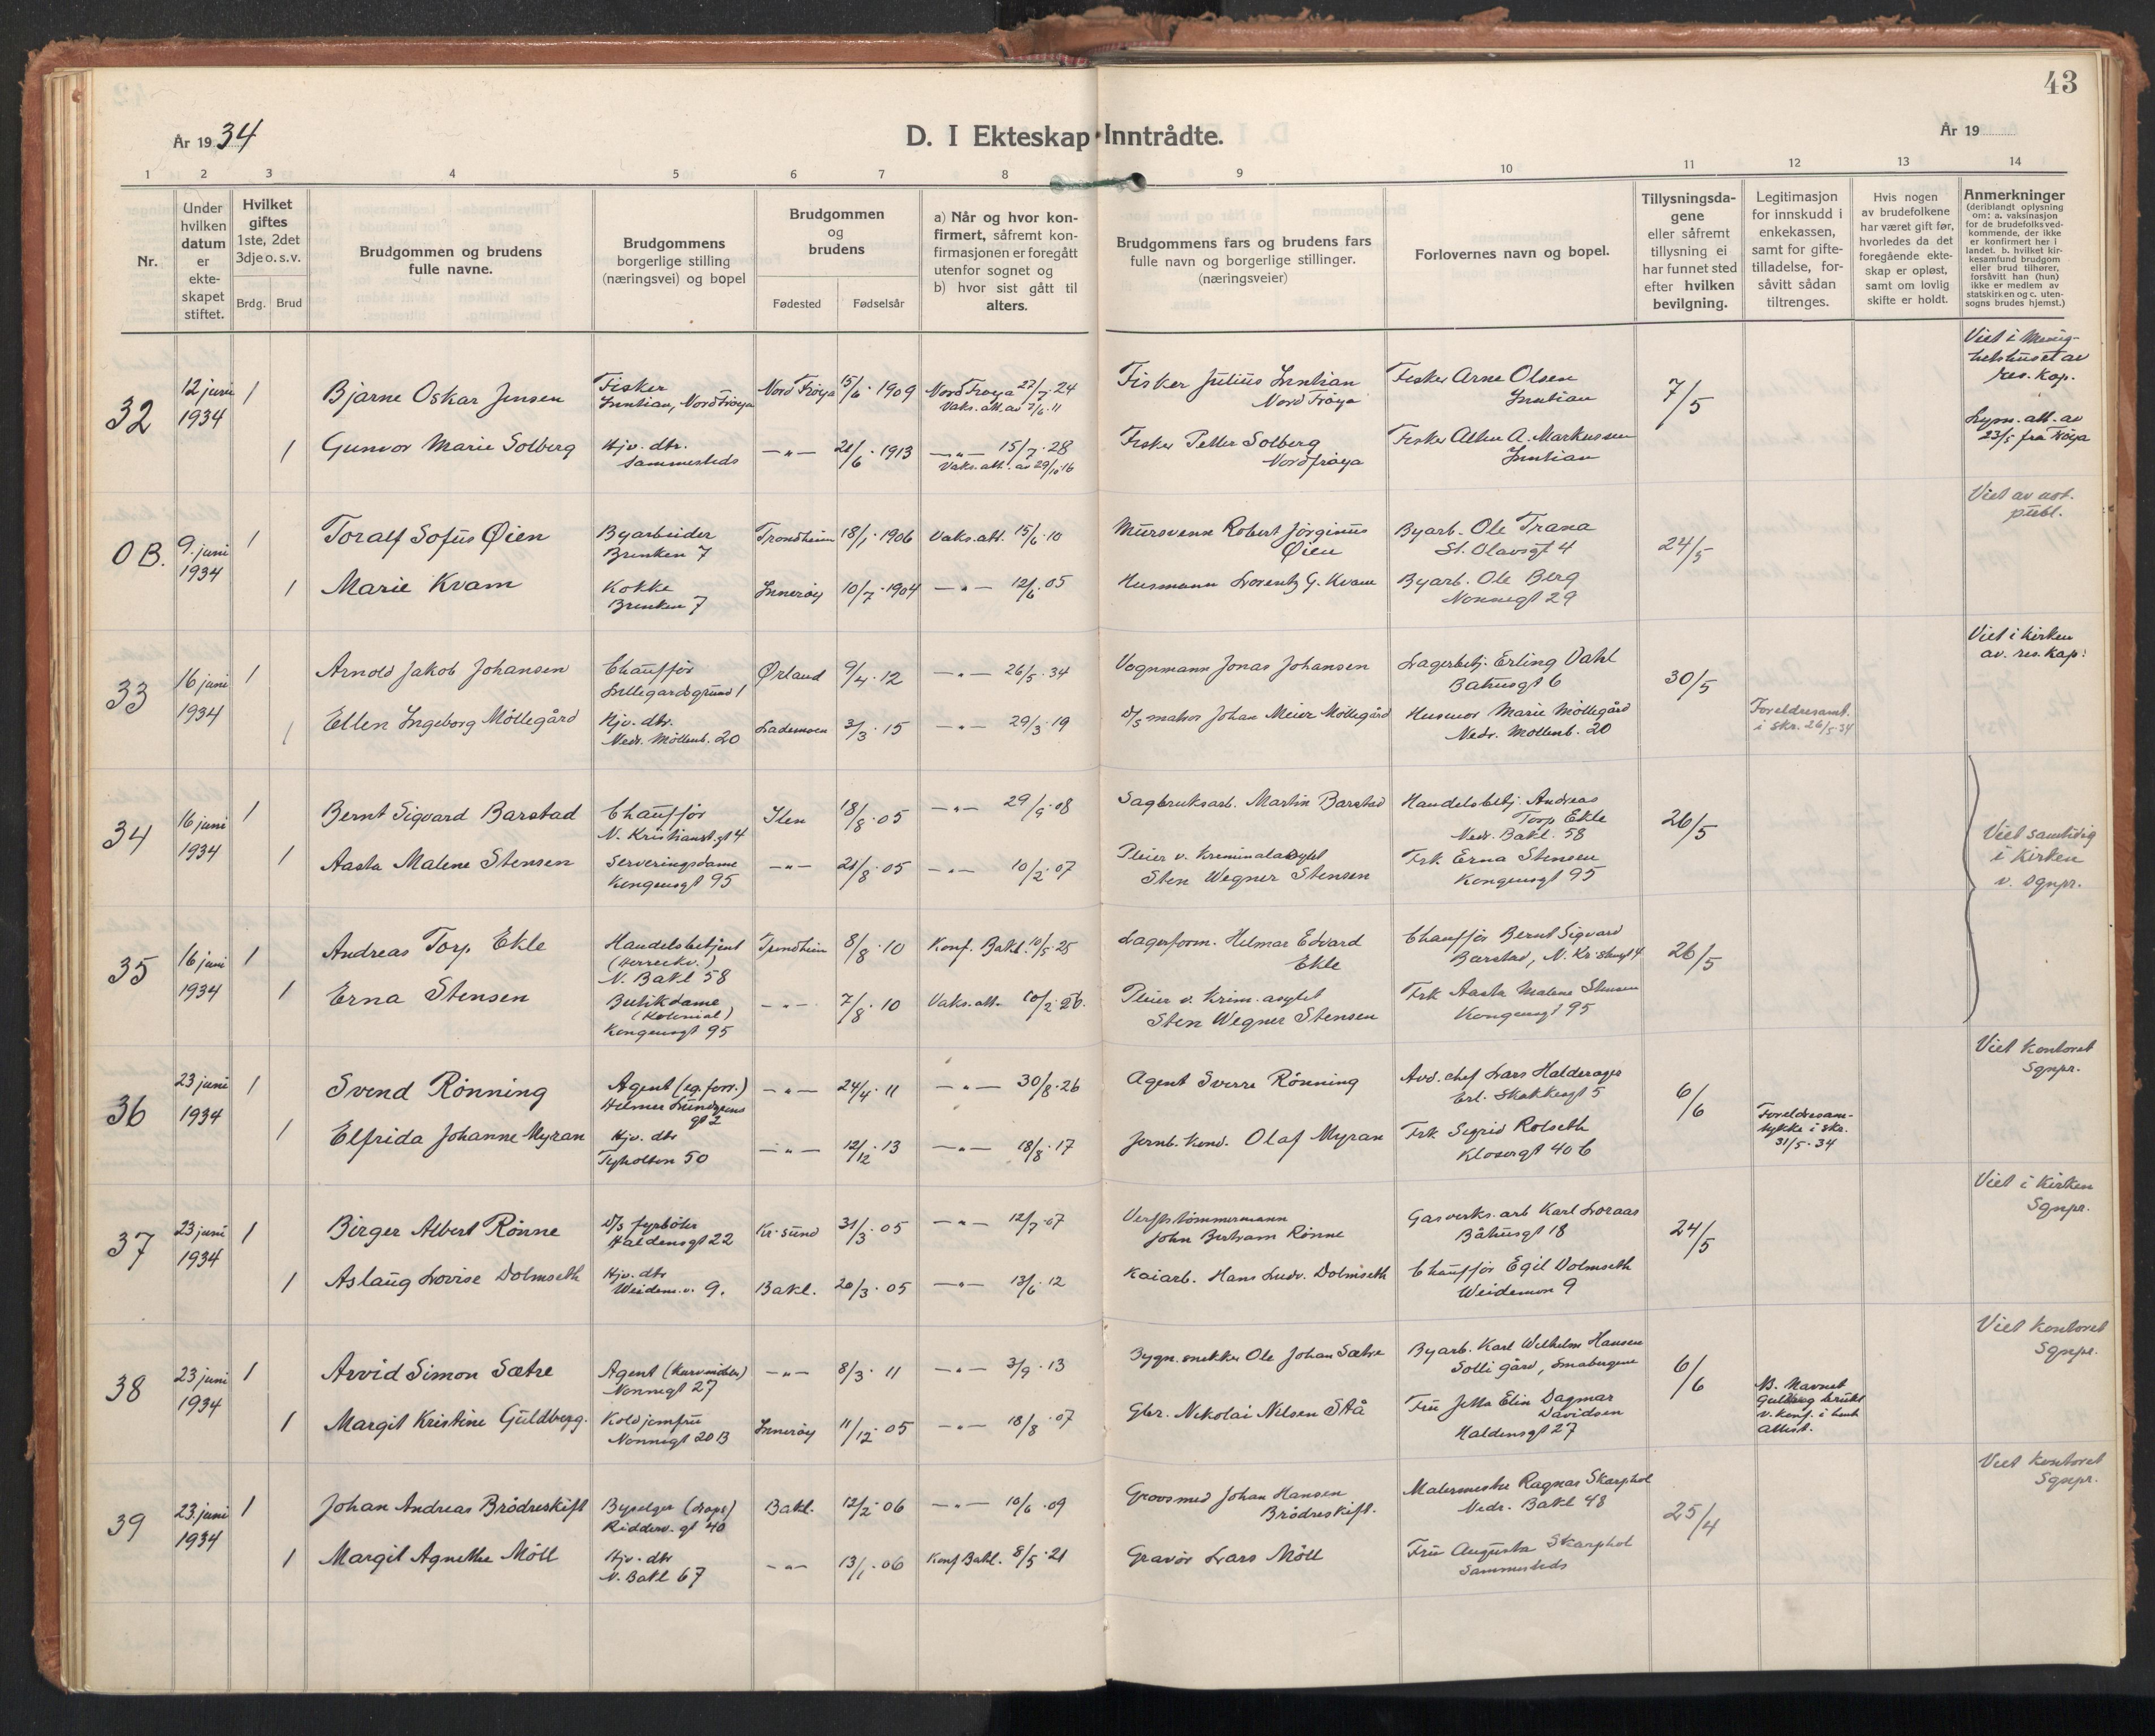 43
År 1934
D. I Ekteskap Inntrådte.
År 19
1 2 3 4 5 6 7 8 9 10 11 12 13 14
Nr.
Under hvilken datum er ekteskapet stiftet.
Hvilket giftes 1ste, 2det 3dje o. s. v.
Brdg. Brud
Brudgommen og brudens fulle navne.
Brudgommens borgerlige stilling (næringsvei) og bopel
Brudgommen og brudens
Fødested Fødselsår
a) Når og hvor konfirmert, såfremt konfirmasjonen er foregått utenfor sognet og
b) hvor sist gått til alters.
Brudgommens fars og brudens fars fulle navn og borgerlige stillinger. (næringsveier)
Forlovernes navn og bopel.
Tillysningsdagene eller såfremt tillysning ei har funnet sted efter hvilken bevilgning.
Legitimasjon for innskudd i enkekassen, samt for giftetilladelse, forsåvitt sådan tiltrenges.
Hvis nogen av brudefolkene har været gift før, hvorledes da det foregående ekteskap er opløst, samt om lovlig skifte er holdt.
Anmerkninger (deriblandt oplysning om: a. vaksinasjon for de brudefolks vedkommende, der ikke er konfirmert her i landet. b. hvilket kirkesamfund brudgom eller brud tilhører, forsåvitt han (hun) ikke er medlem av statskirken og c. utensogns brudes hjemst.)
32
12 juni 1934
1
Bjarne Oskar Jensen
Fisker
Inntian, Nord Frøya
Nord Frøya 15/6 · 1909
Nord Frøya 27/7 24
Vaks. att. av 7/6 11
Fisker Julius Inntian
Nord Frøya
Fisker Arne Olsen
Inntian
7/5
Viet i Menighetshuset av res. kap.
Lysn. att. av 23/5 fra Frøya
1
Gunvor Marie Solberg
Hjv. dtr.
Sammesteds
—"— 21/6 · 1913
—"— 15/7 · 28
Vaks. att. av 29/10 16
Fisker Petter Solberg
Nordfrøya
Fisker A. Markussen
Inntian
O B.
9. juni 1934
1
Toralf Sofus Øien
Byarbeider
Brinken 7
Trondheim 18/1 · 1906
Vaks. att. 15/6 · 10
Mursvenn Robert Jørginus
Øien
Byarb. Ole Trana
St. Olavsgt 4
24/5
Viet av not. publ.
1
Marie Kvam
Kokke
Brinken 7
Innerøy 10/7 · 1904
—"— 12/6 · 05
Husmann Lorentz G. Kvam
Byarb. Ole Berg
Nonnegt 29
33
16 juni 1934
1
Arnold Jakob Johansen
Chauffør
Lillegårdsgrund 1
Ørland 9/4 · 12
—"— 26/5 · 34
Vognmann Jonas Johansen
Lagerbetj. Erling Dahl
Båhusgt 6
30/5
Viet i kirken av. res. kap.
1
Ellen Ingeborg Möllegård
Hjv. dtr.
Nedr. Möllenb. 20
Lademoen 3/3 · 15
—"— 29/3 · 19
D/S matros Johan Meier Möllegård
Husmor Marie Möllegård
Nedr. Möllenb. 20
Foreldresamt. i skr. 26/5 · 34
34
16 juni 1934
1
Bernt Sigvard Barstad
Chauffør
N. Kristianst. gt 4
Ilen 18/8 · 05
—"— 29/9 · 08
Sagbruksarb. Martin Barstad
Handelsbetj. Andreas
Torp Ekle
Nedr. Bakl. 58
26/5
Viet samtidig i kirken v. sgnpr.
1
Aasta Malene Stensen
Serveringsdame
Kongensgt 95
—"— 21/8 · 05
—"— 10/2 · 07
Pleier v. Kriminalasylet
Sten Wegner Stensen
Frk Erna Stensen
Kongensgt 95
35
16 juni 1934
1
Andreas Torp Ekle
Handelsbetjent
(Herreekv.)
N. Bakl 58
Trondheim 8/8 · 10
Konf. Bakl. 10/5 · 25
Lagerform. Hilmar Edvard
Ekle
Chauffør Bernt Sigvard
Barstad, N. Kr. stgt 4
26/5
1
Erna Stensen
Butikdame
(Kolonial)
Kongensgt 95
—"— 7/8 · 10
Vaks. att. 10/2 · 26.
Pleier v. Krim. asylet
Sten Wegner Stensen
Frk Aasta Malene Stensen
Kongensgt 95
36
23 juni 1934
1
Svend Rönning
Agent (eg. forr.)
Hilmar Lundgrens gt 2
—"— 24/4 · 11
—"— 30/8 · 26
Agent Sverre Rönning
Avd. chef Lars Halderager
Erl. Skakkesgt 5
6/6
Viet kontoret Sgnpr.
1
Elfrida Johanne Myran
Hjv. dtr
Tyholtvn 50
—"— 12/12 · 13
—"— 18/8 · 17
Jernb. Kond. Olaf Myran
Frk. Sigrid Rolseth
Klostergt 40 b
Foreldresamtykke i skr. 31/5 · 34
37
23 juni 1934
1
Birger Albert Rönne
D/S fyrböter
Haldensgt 22
Kr.sund 31/3 · 05
—"— 12/7 · 07
Verftstömmermann
John Bertram Rönne
Gasverks. arb Karl Loraas
Båhusgt 18
24/5
Viet i kirken Sgnpr.
1
Aslaug Lovise Dolmseth
Hjv. dtr
Weidem. v. 9.
Bakl. 20/3 · 05
—"— 13/6 · 12
Kaiarb. Hans Ludv. Dolmseth
Chauffør Egil Dolmseth
Weidemvn 9
38
23 juni 1934
1
Arvid Simon Sætre
Nonnegt 27
—"— 8/3 · 11
—"— 3/9 · 13
Bygn. snekker Ole Johan Sætre
Byarb. Karl Wilhelm Hansen
Solli gård, Småbergene
6/6
Viet kontoret Sgnpr.
1
Margit Kristine Guldberg.
Koldjomfru
Nonnegt 20 B
Innerøy 11/12 · 05
—"— 18/8 · 07
Gbr. Nikolai Nilsen Stå
Fru Jetta Elin Dagmar
Davidsen
Haldensgt 27
N. Navnet Guldberg brukt v. konf. i hht attest.
39
23 juni 1934
1
Johan Andreas Brödreskift
Byselger (drops)
Ridderv. gt 40
Bakl. 12/2 · 06
—"— 10/6 · 09
Grovsmed Johan Hansen
Brödreskift.
Malermester Ragnar Skarphol
Nedr. Bakl 48
25/4
Viet kontoret Sgnpr.
1
Margit Agnethe Möll
Hjv. dtr
N. Bakl 67
—"— 13/1 · 06
Konf Bakl. 8/5 · 21
Gravör Lars Möll
Fru Augusta Skarphol
Sammesteds